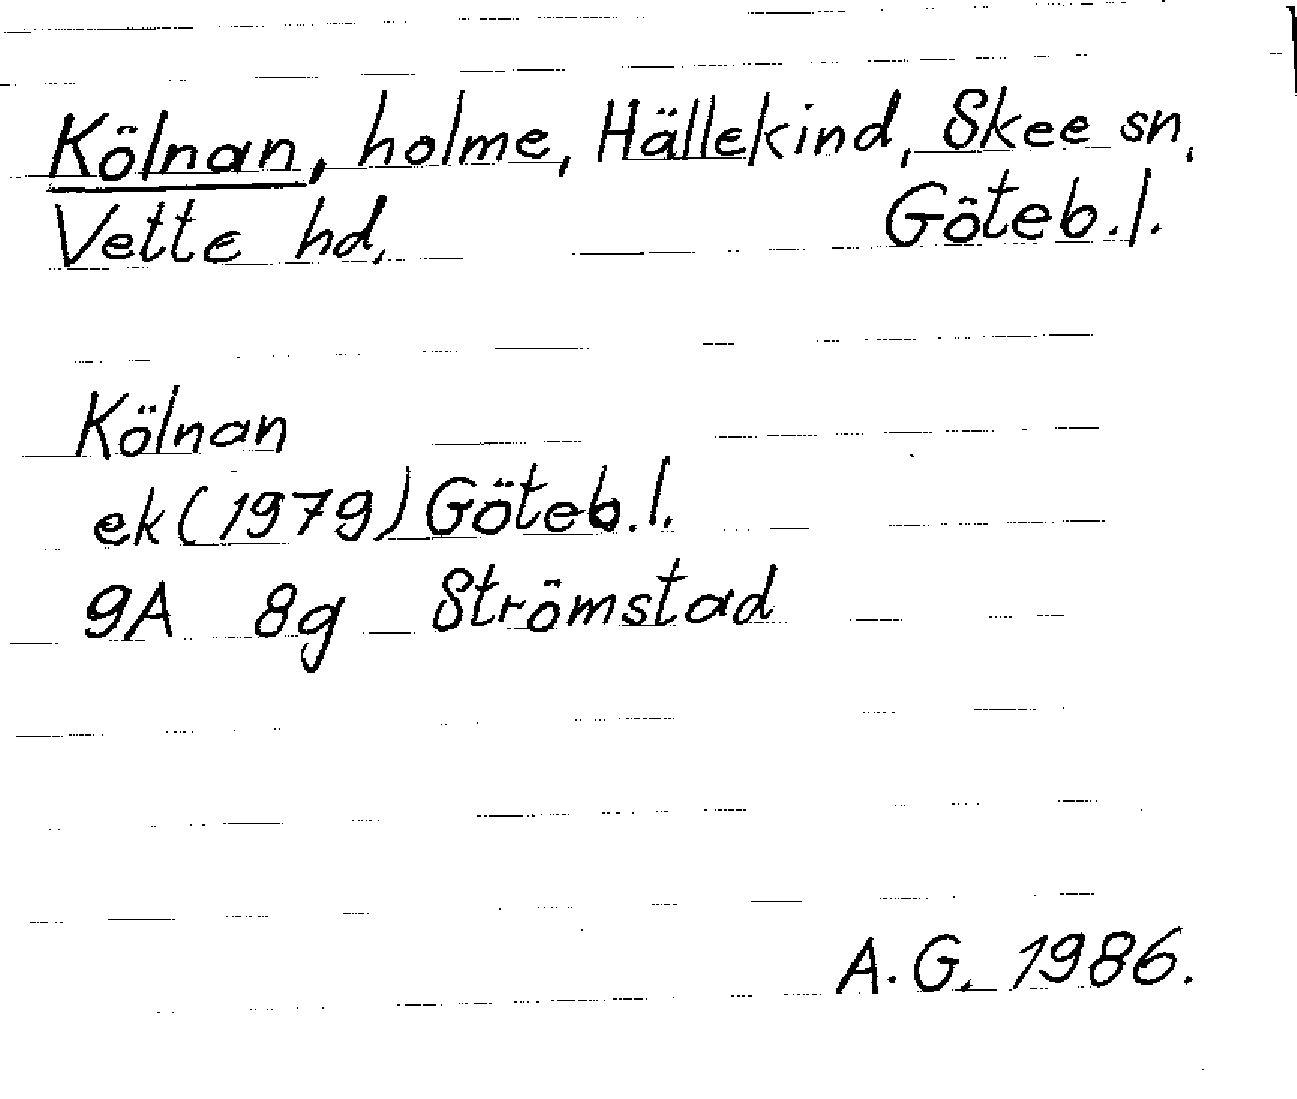 Kölnan, holme, Hällekind, Skee sn,
Vette hd, Göteb.l.
Kölnan
ek (1979) Göteb.l.
9A 8g Strömstad
A.G. 1986.